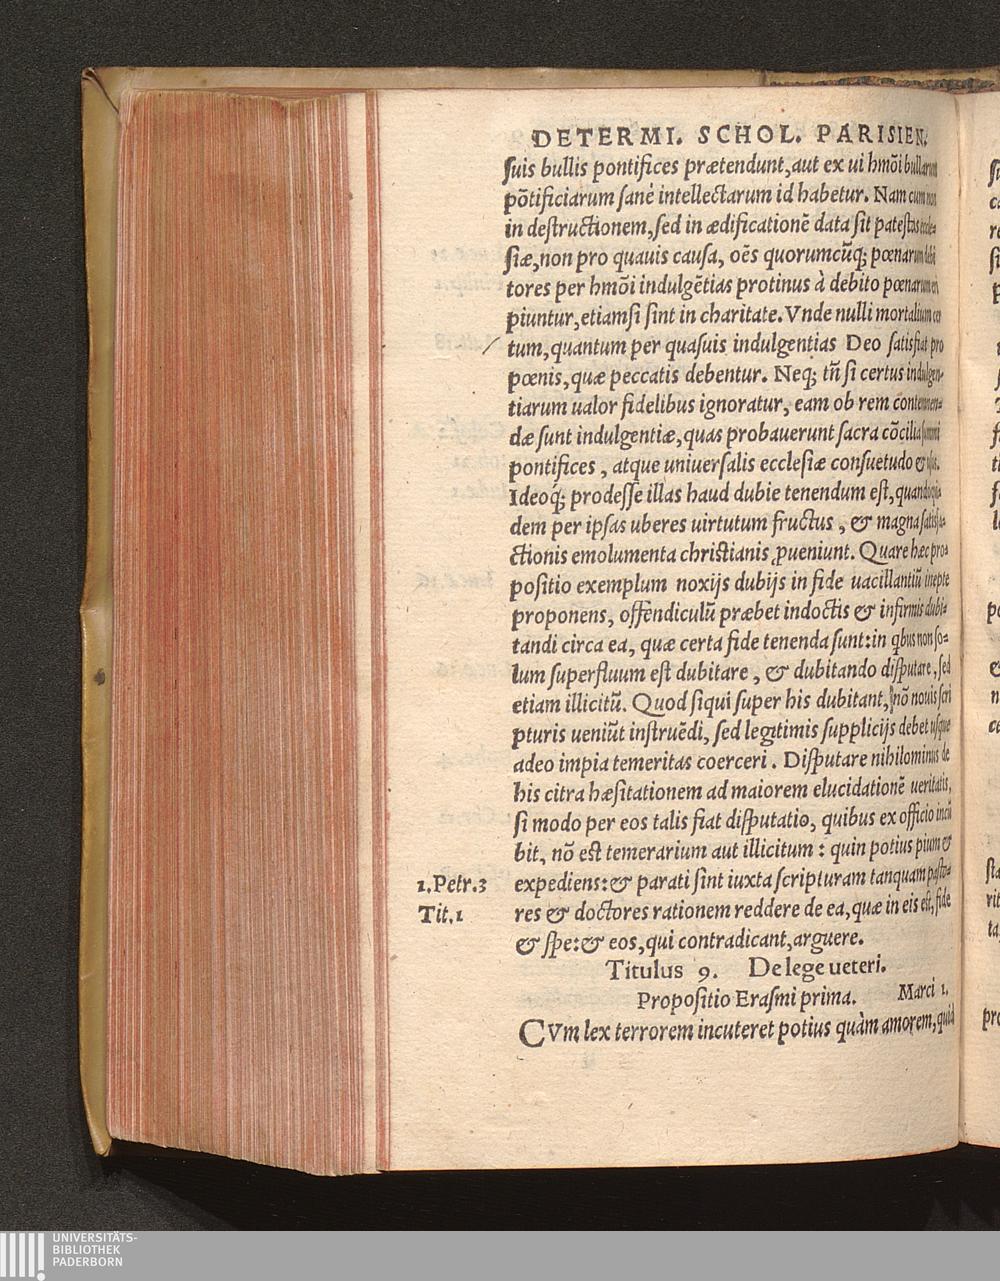 DETERMI. SCHOL. PARISIEN.
suis bullis pontifices prætendunt, aut ex ui hmõi bullarum
põtificiarum sanè intellectarum id habetur. Nam cum non
in destructionem, sed in ædificationẽ data sit patestas eccle-
siæ, non pro quauis causa, oẽs quorumcũq; pœnarum debi
tores per hmõi indulgẽtias protinus à debito pœnarum eri
piuntur, etiamsi sint in charitate. Vnde nulli mortalium cer
tum, quantum per quasuis indulgentias Deo satisfiat pro
pœnis, quæ peccatis debentur. Neq; tñ si certus indulgen-
tiarum ualor fidelibus ignoratur, eam ob rem contemnen-
dæ sunt indulgentiæ, quas probauerunt sacra cõcilia summi
pontifices, atque uniuersalis ecclesiæ consuetudo & usus.
Ideoq́; prodesse illas haud dubie tenendum est, quandoqui
dem per ipsas uberes uirtutum fructus, & magna satisfa-
ctionis emolumenta christianis ꝓueniunt. Quare hæc pro-
positio exemplum noxijs dubijs in fide uacillantiũ inepte
proponens, offendiculũ præbet indoctis & infirmis dubi-
tandi circa ea, quæ certa fide tenenda sunt: in qbus non so-
lum superfluum est dubitare, & dubitando disputare, sed
etiam illicitũ. Quod siqui super his dubitant, nõ nouis scri
pturis ueniũt instruẽdi, sed legitimis supplicijs debet usque
adeo impia temeritas coerceri. Disputare nihilominus de
his citra hæsitationem ad maiorem elucidationẽ ueritatis,
si modo per eos talis fiat disputatio, quibus ex officio incũ
bit, nõ est temerarium aut illicitum: quin potius pium &
1. Petr. 3 expediens: & parati sint iuxta scripturam tanquam pasto-
Tit. 1 res & doctores rationem reddere de ea, quæ in eis est, fide
& spe: & eos, qui contradicant, arguere.
Titulus 9. De lege ueteri.
Propositio Erasmi prima. Marci 1.
CVm lex terrorem incuteret potius quàm amorem, quid
UNIVERSITÄTS-
BIBLIOTHEK
PADERBORN